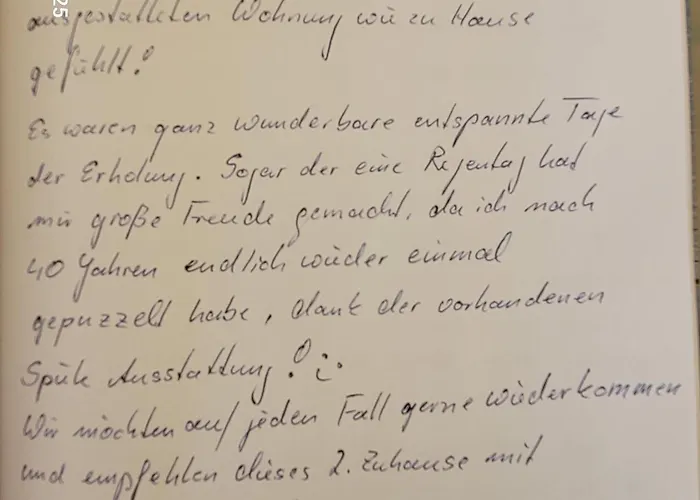 25
ausgestatteten Wohnung wie zu Hause
gefühlt!
Es waren ganz wunderbare entspannte Tage
der Erholung. Sogar der eine Regentag hat
mir große Freude gemacht, da ich nach
40 Jahren endlich wieder einmal
gepuzzelt habe, dank der vorhandenen
Ausstattung! :-)
Wir möchten auf jeden Fall gerne wiederkommen
und empfehlen dieses 2. Zuhause mit